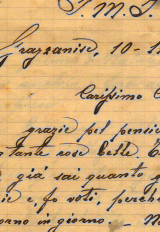 J. M. J.
Grazzanise, 10-1
Carissimo C
grazie pel pensie
tante rose belle. E
già sai quanto
ie e, fo voti, perchè
orno in giorno. - M